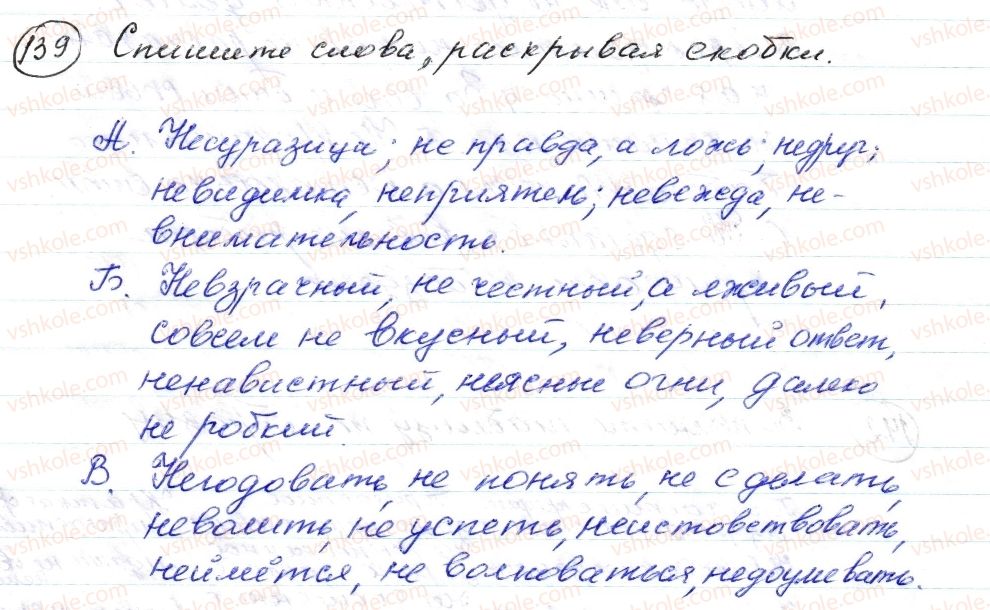 139 Спишите слова, раскрывая скобки.
А. Несуразица; не правда, а ложь; недруг;
невидимка, неприятель; невежда, не-
внимательность.
Б. Невзрачный, не честный, а лживый,
совсем не вкусный, неверный ответ,
ненавистный, неясные огни, далеко
не робкий.
В. Негодовать, не понять, не сделать,
неволить, не успеть, неистовствовать,
неймётся, не волноваться, недоумевать.
vshkole.com